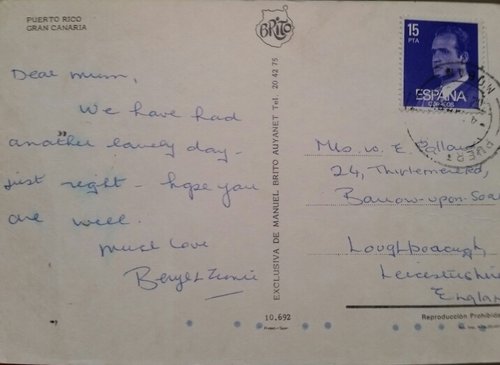 PUERTO RICO
GRAN CANARIA
BRITO
Dear mum,
We have had
another lovely day -
just right - hope you
are well.
much love
Beryl
EXCLUSIVA DE MANUEL BRITO AUYANET Tel. 20 42 75
10.692
15
PTA
ESPAÑA
CORREOS
Mrs. W. E.
24, Thirlemere Rd,
Barrow-upon-Soar
Loughborough,
Leicestershire
England
Reproducción Prohibida